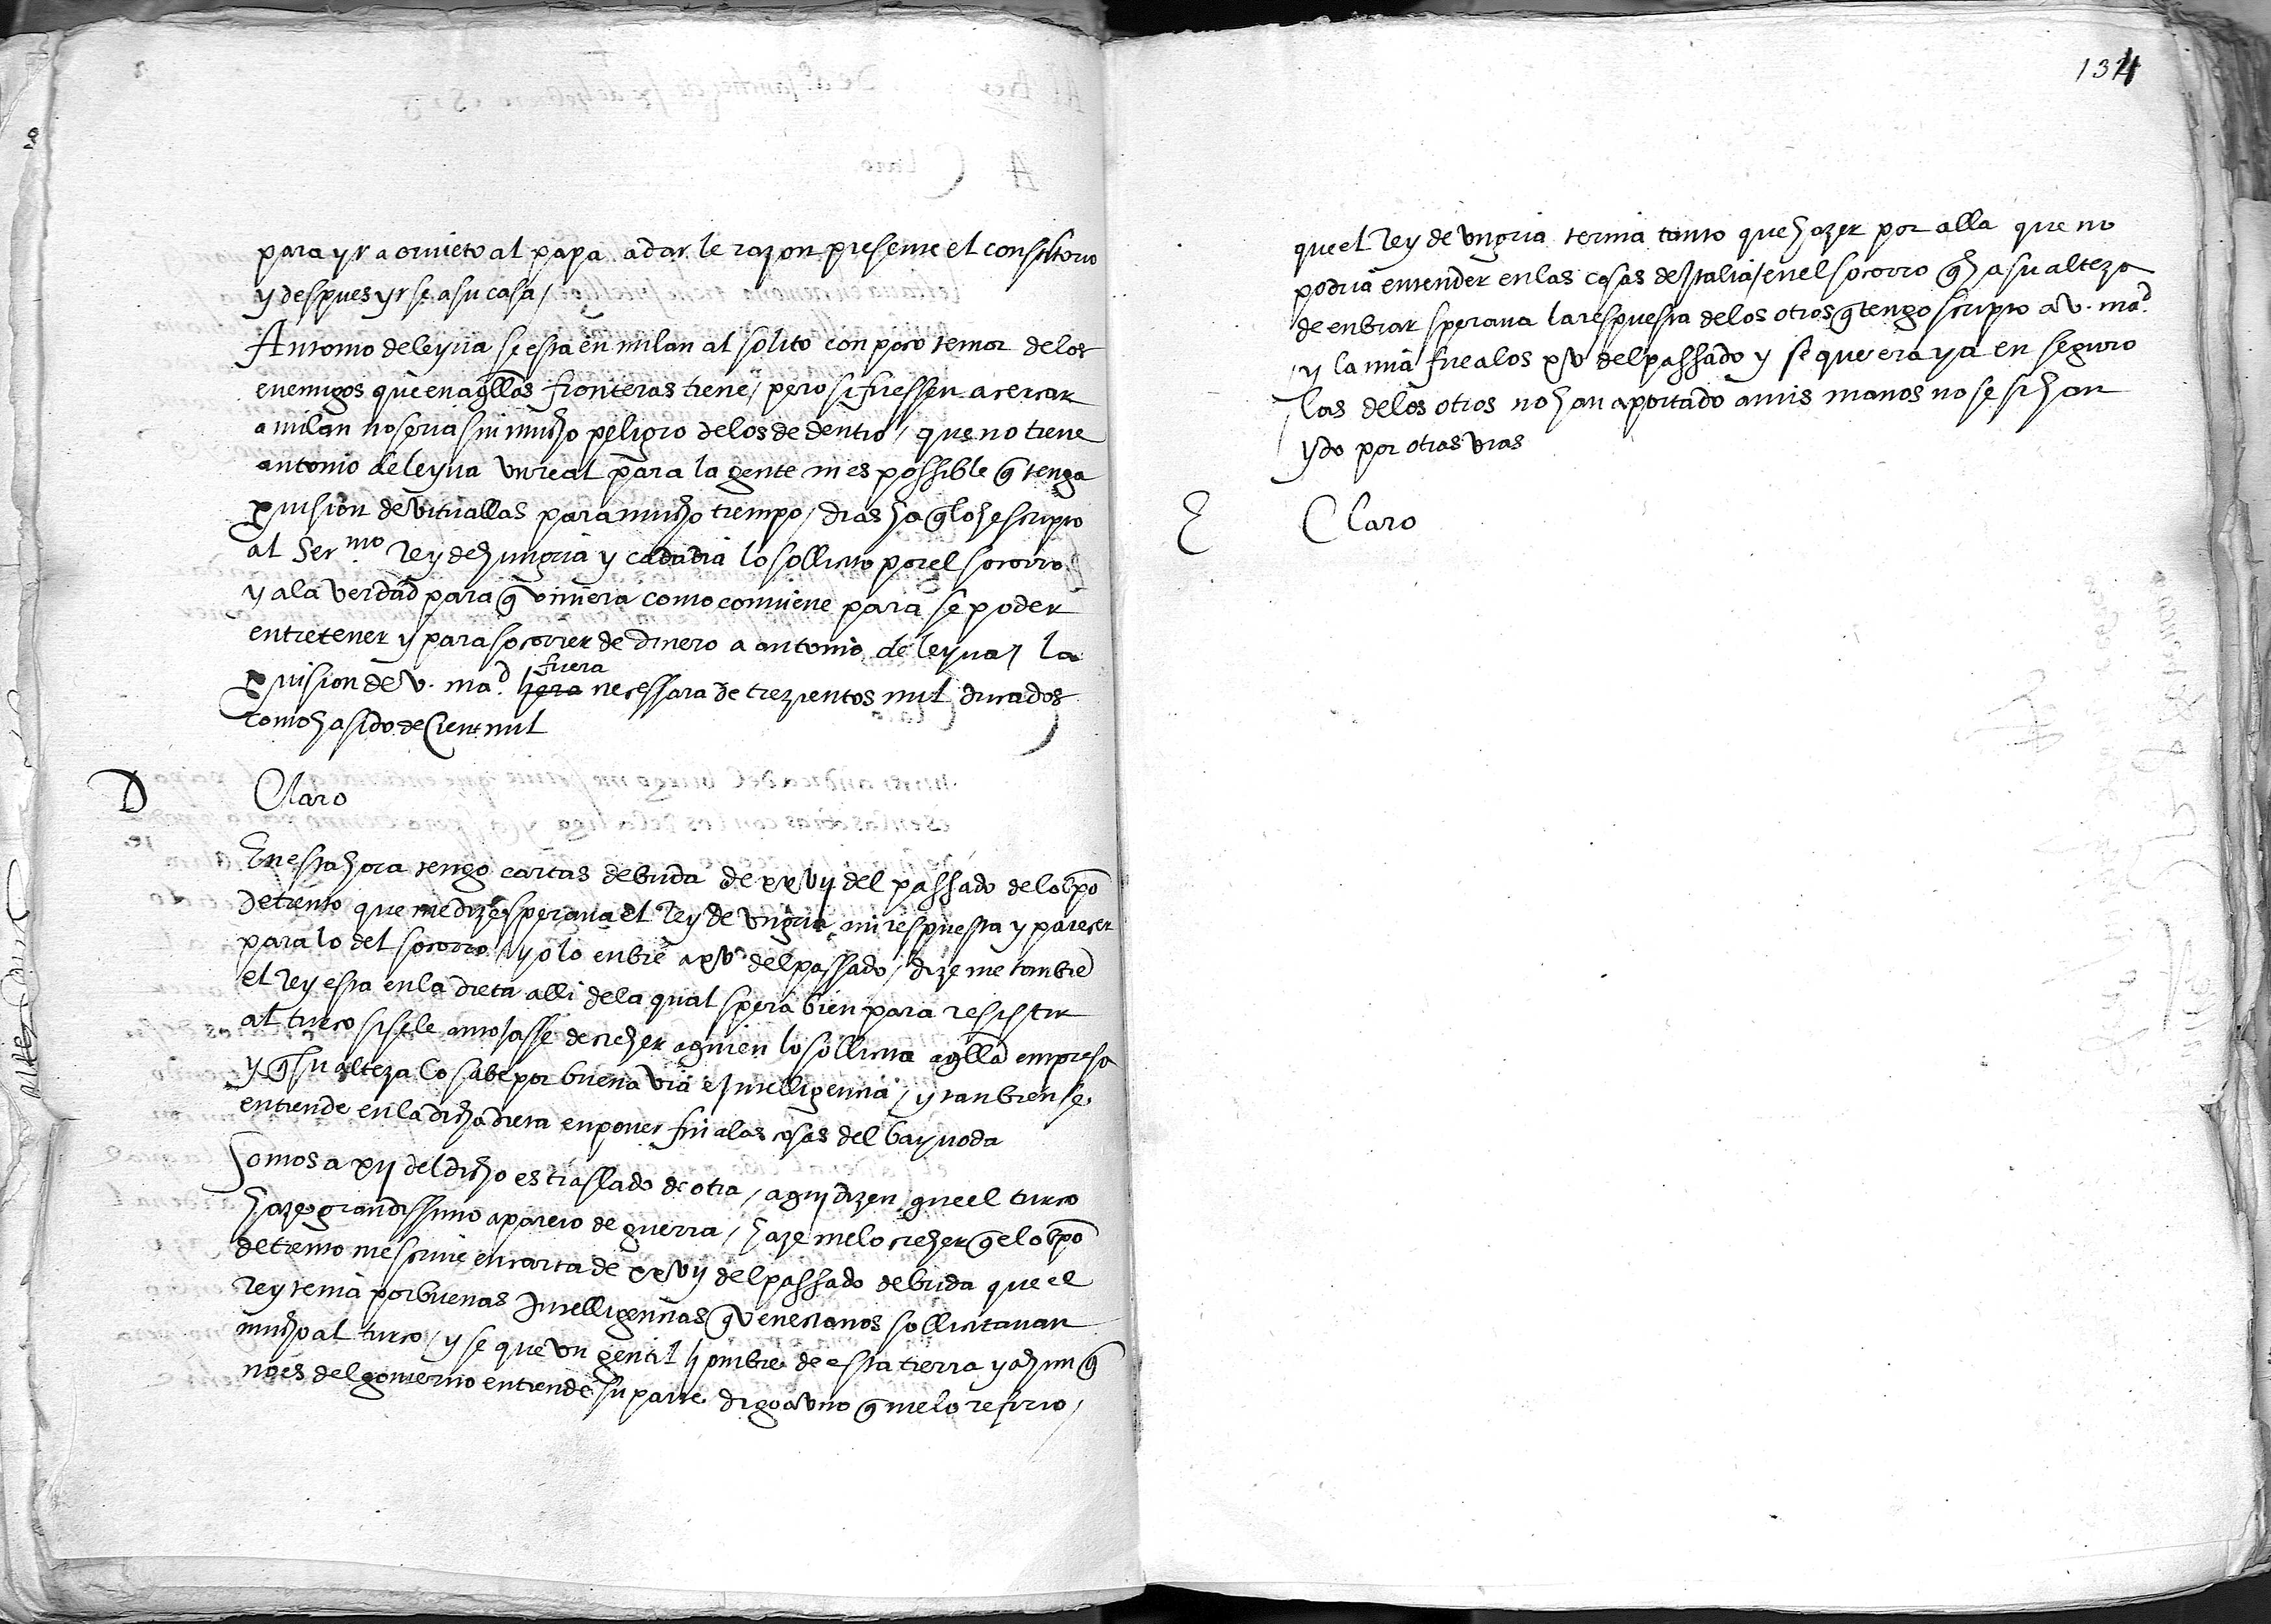 para yr a orvieto al papa a dar le razon presente el consistorio
y despues yr se a su casa /
Antonio de leyva se esta en milan al solito con poco temor de los
enemigos que en aqllas fronteras tiene / pero si fuessen a cercar
a milan no seria sin mucho peligro de los de dentro / que no tiene
antonio de leyva un real para la gente ni es possible q̃ tenga
pvision de vituallas para mucho tiempo / dias ha q̃ lo he scripto
al Ser.mo rey de hungria y cada dia lo sollicito por el socorro
y a la verdad para q̃ viniera como conviene para se poder
entretener y para socorrer de dinero a antonio de leyva / la
fuera
pvision de v. mad. hera necessaria de trezientos mil ducados
como ha sido de Cient mil
D Claro
En esta hora tengo cartas de buda de xxvij del passado del obpo
de trento que me dize sperava el rey de ungria mi respuesta y parecer
para lo del socorro / yo lo enbie a xv del passado / dize me tambiē
el rey esta en la dieta alli de la qual spera bien para resistir
al turco si se le antojasse de creher a quien lo sollicita aqlla empresa
y q̃ su alteza lo sabe por buena via e Intelligencia / y tanbien se
entiende en la dicha dieta en poner fin a las cosas del bayuoda
Somos a xij del dicho es traslado de otra / aqui dizen que el turco
haze grandissimo aparejo de guerra / haze me lo creher q̃ el obpo
de trento me scrive en carta de xxvij del passado de buda que el
rey tenia por buenas Intelligencias q̃ venecianos sollicitavan
mucho al turco / y se que un gentil hombre de esta tierra y ahun q̃
no es del govierno entiende su parte digo a uno q̃ me lo refirio /
134
que el rey de ungria ternia tanto que hazer por alla que no
podria entender en las cosas de Italia / en el socorro q̃ ha su alteza
de enbiar sperava la respuesta de los otros q̃ tengo scripto a v. mad.
y la mia fue a los xv del passado y se que era ya en seguro
las de los otros no han aportado a mis manos no se si han
ydo por otras vias
E Claro